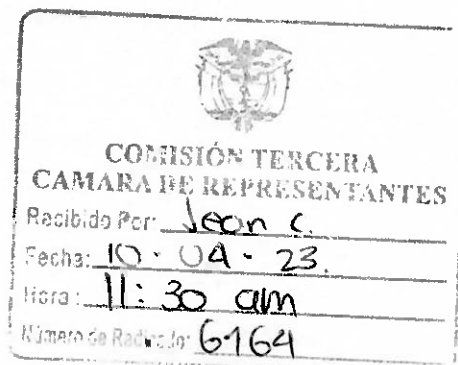 COMISIÓN TERCERA
CAMARA DE REPRESENTANTES
Recibido Por: Jean C.
Fecha: 10 - 04 - 23.
Hora: 11:30 am
Número de Radicado: 6164